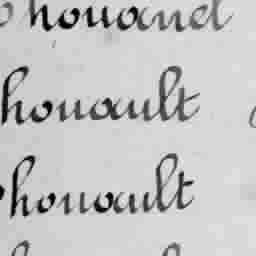 houanel
houault
houault